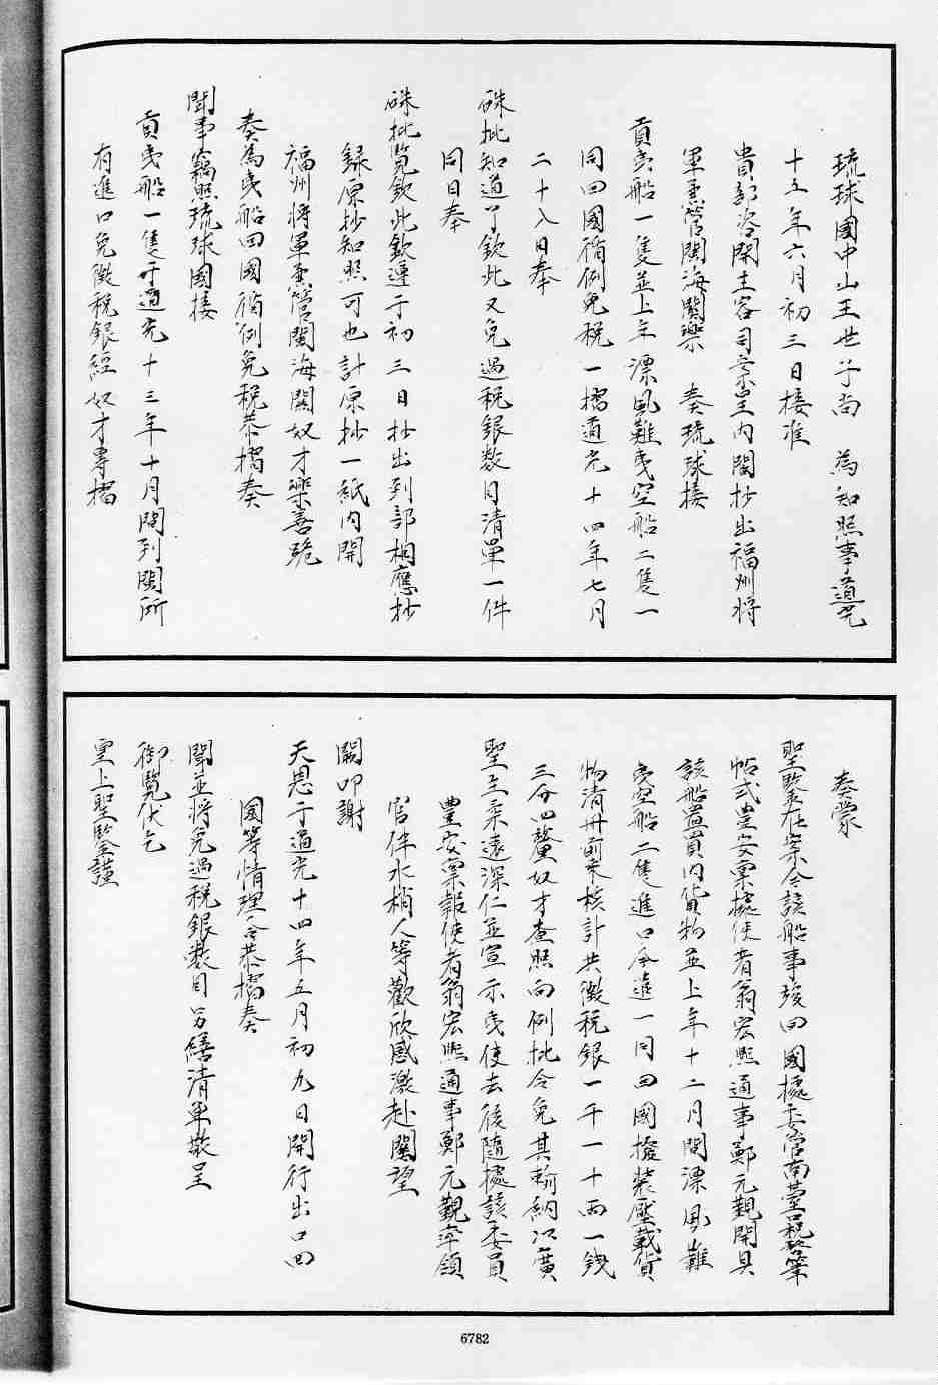 琉球國中山王世子尚　為知照事道光
十五年六月初三日接准
貴部咨開主客司案呈內閣抄出福州將
軍兼管閩海關樂　奏琉球接
貢夷船一隻並上年漂風難夷空船二隻一
同回國循例免稅一摺道光十四年七月
二十八日奉
硃批知道了欽此又免過稅銀數目清單一件
同日奉
硃批覽欽此欽遵于初三日抄出到部相應抄
錄原抄知照可也計原抄一紙內開
福州將軍兼管閩海關奴才樂善跪
奏為夷船回國循例免稅恭摺奏
聞事竊照琉球國接
貢夷船一隻于道光十三年十月間到閩所
有進口免徵稅銀經奴才專摺
奏蒙
聖鑒在案今該船事竣回國據委管南臺口稅務筆
帖式豊安稟據使者翁宏熙通事鄭元觀開具
該船置買內貨物並上年十二月間漂風難
夷空船二隻進口今進一同回國撥裝壓載貨
物清冊前來核計共徵稅銀一千一十兩一錢
三分四釐奴才查照向例批令免其輸納以廣
聖主柔遠深仁並宣示夷使去後隨據該委員
豊安稟報使者翁宏熙通事鄭元觀率領
官伴水梢人等歡欣感激赴關望
闕叩謝
天恩于道光十四年五月初九日開行出口回
國等情理合恭摺奏
聞並將免過稅銀數目另繕清單敬呈
御覽伏乞
皇上聖鑒謹
6782